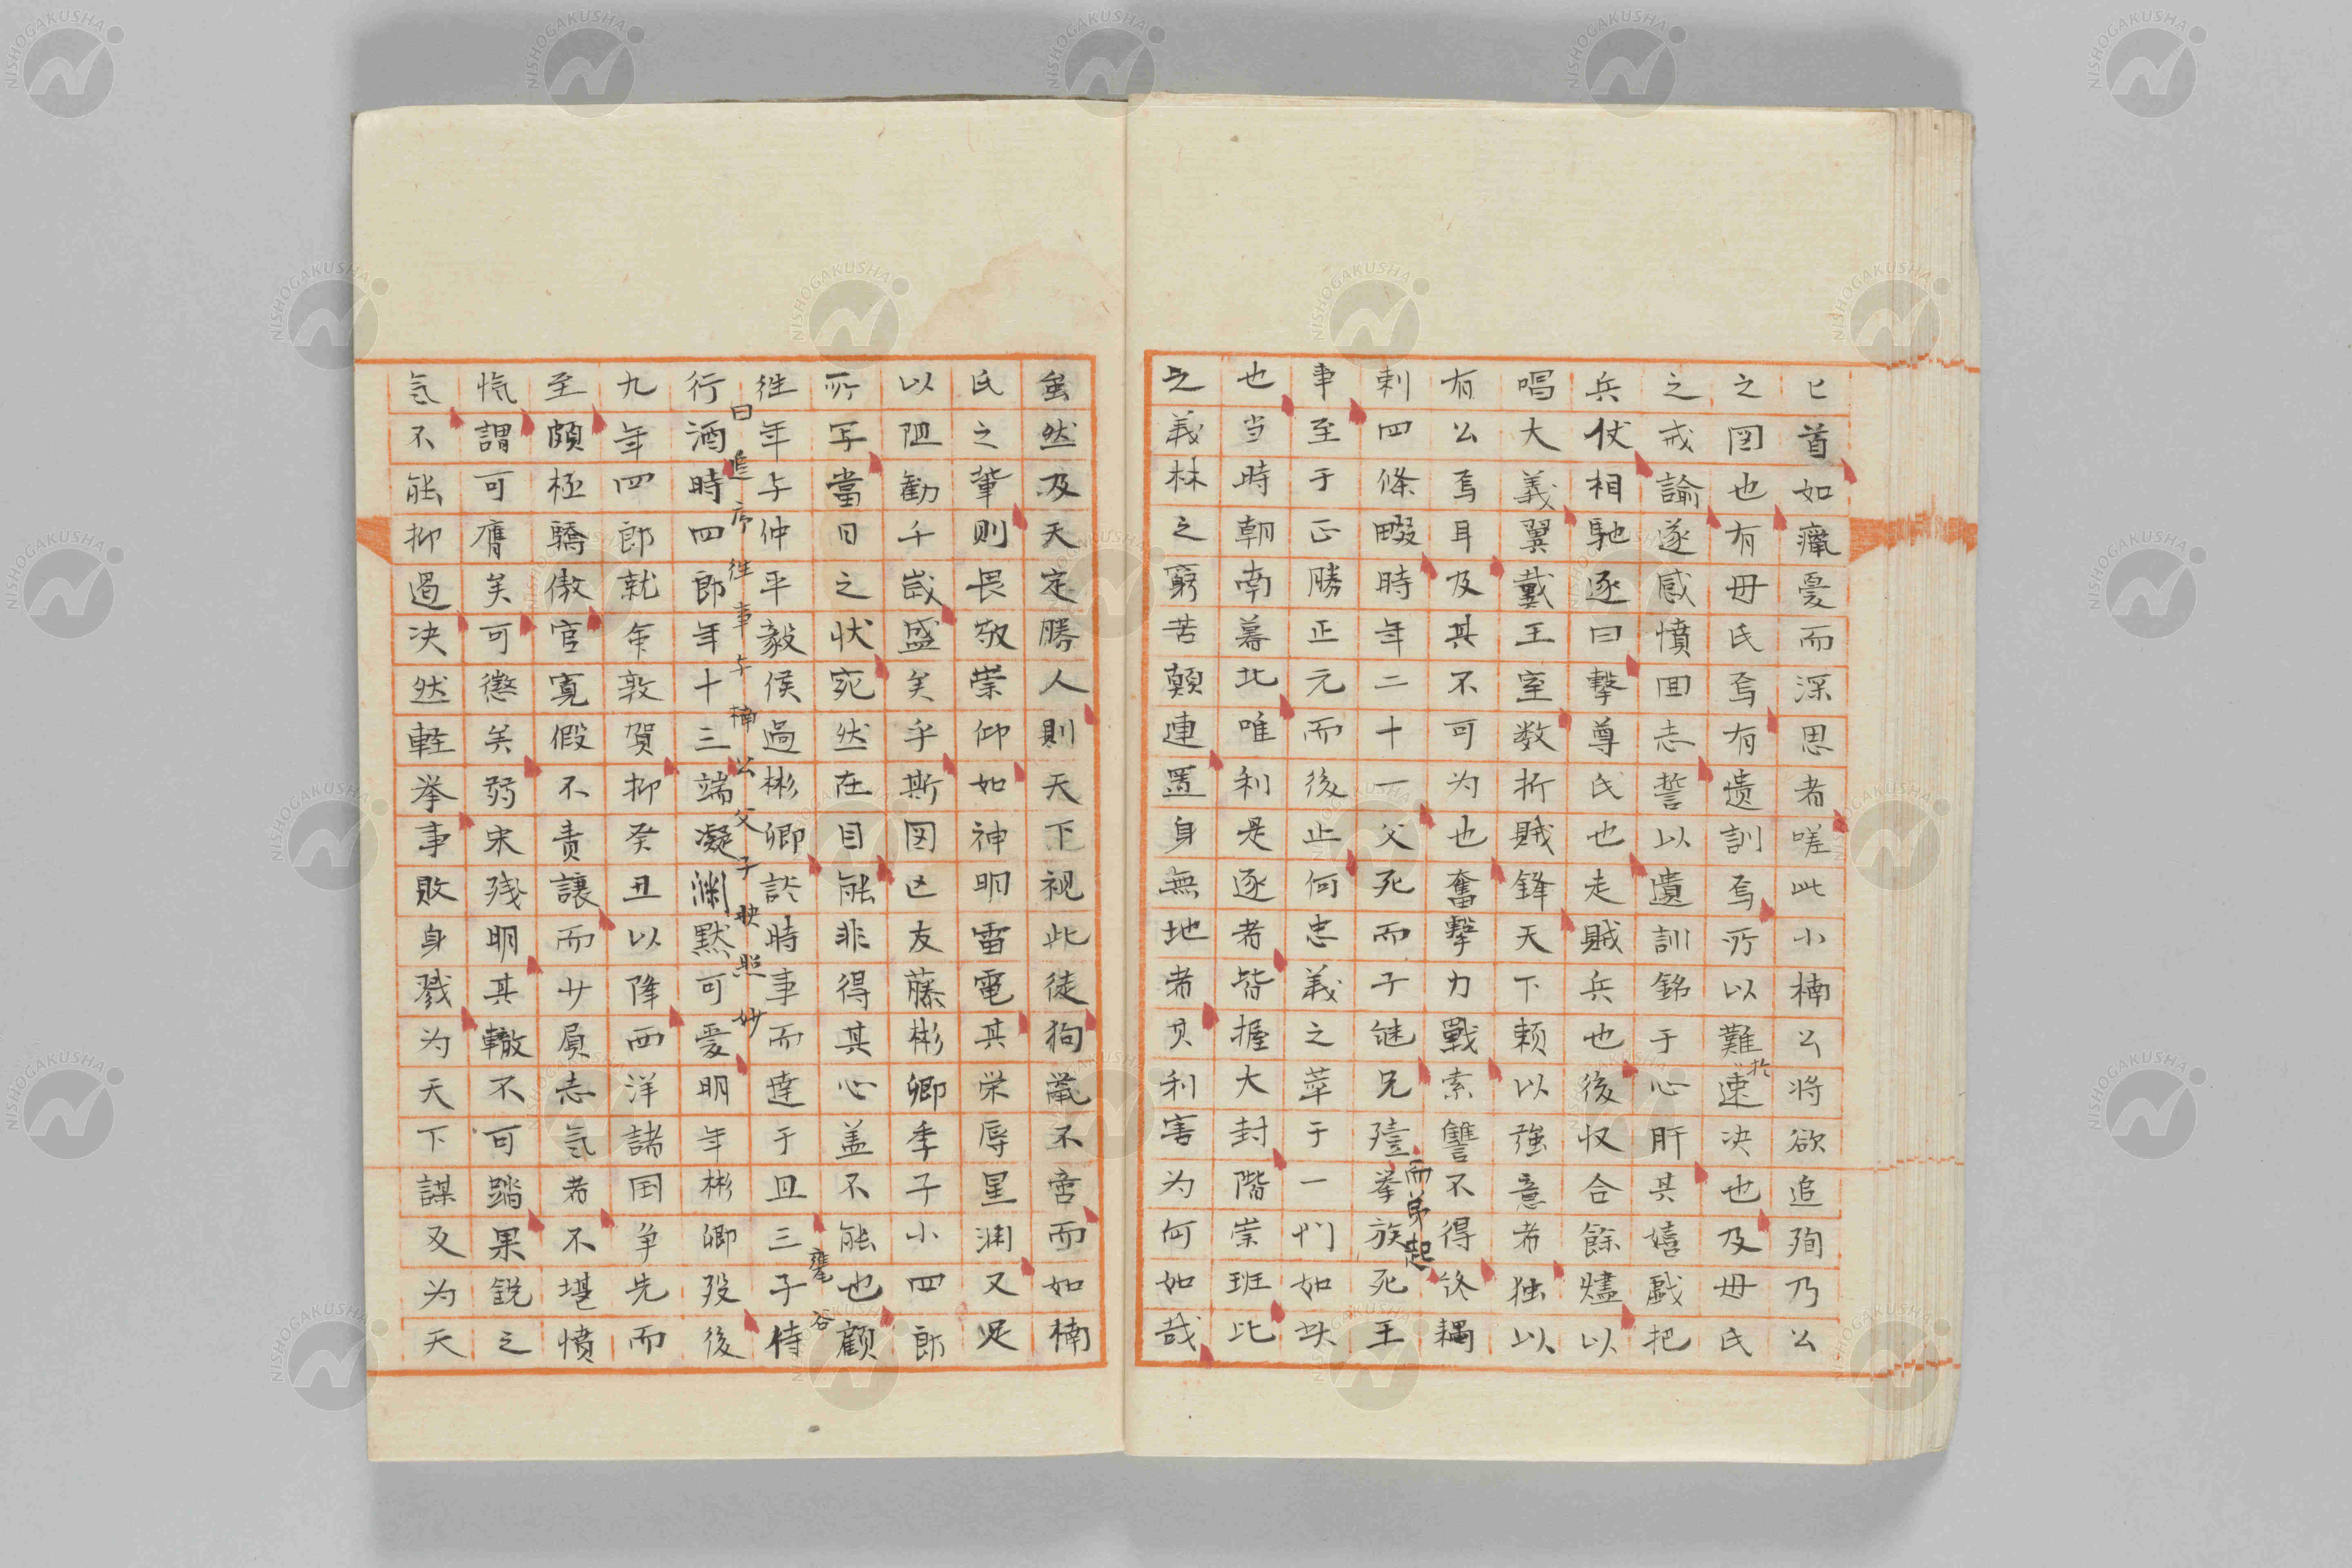 匕首如癡憂而深思者嗟此小楠公将欲追殉乃公
之図也有母氏焉有遺訓焉所以難於速决也及母氏
之戒諭遂感憤回志誓以遺訓銘于心肝其嬉戯把
兵仗相馳逐曰撃尊氏也走賊兵也後収合餘燼以
唱大義翼戴王室数折賊鋒天下頼以強意者独以
有公焉耳及其不可为也奮撃力戰索讐不得終耦
刺四條畷時年二十一父死而子継兄殪而弟起挙族死王
事至于正勝正元而後止何忠義之萃于一門如此
也当時朝南暮北唯利是逐者皆握大封階崇班比
之義林之窮苦顛連置身無地者其利害为何如哉
虽然及天定勝人則天下視此徒狗鼠不啻而如楠
氏之輩則畏敬崇仰如神明雷電其栄辱星渊又足
以阻勧千歳盛矣乎斯図亡友藤彬卿季子小四郎
所写當日之状宛然在目能非得其心盖不能也顧
往年与仲平毅侯過彬卿談時事而達于且三子侍
甕谷
曰追序往事与楠公父子映照妙
行酒時四郎年十三端凝渊黙可愛明年彬卿殁後
九年四郎就年敦賀抑癸丑以降西洋諸国争先而
至頗極驕傲官寛假不責譲而少屓志氣者不堪憤
愾謂可膺矣可懲矣弱宋残明其轍不可踏果鋭之
氣不能抑遏决然軽挙事敗身戮为天下謀又为天